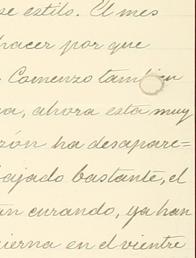 se estilo. El mes
hacer por que
Comenzo tambien
a, ahora esta muy
zón ha desapare=
bajado bastante, el
an curando, ya han
ierna en el vientre